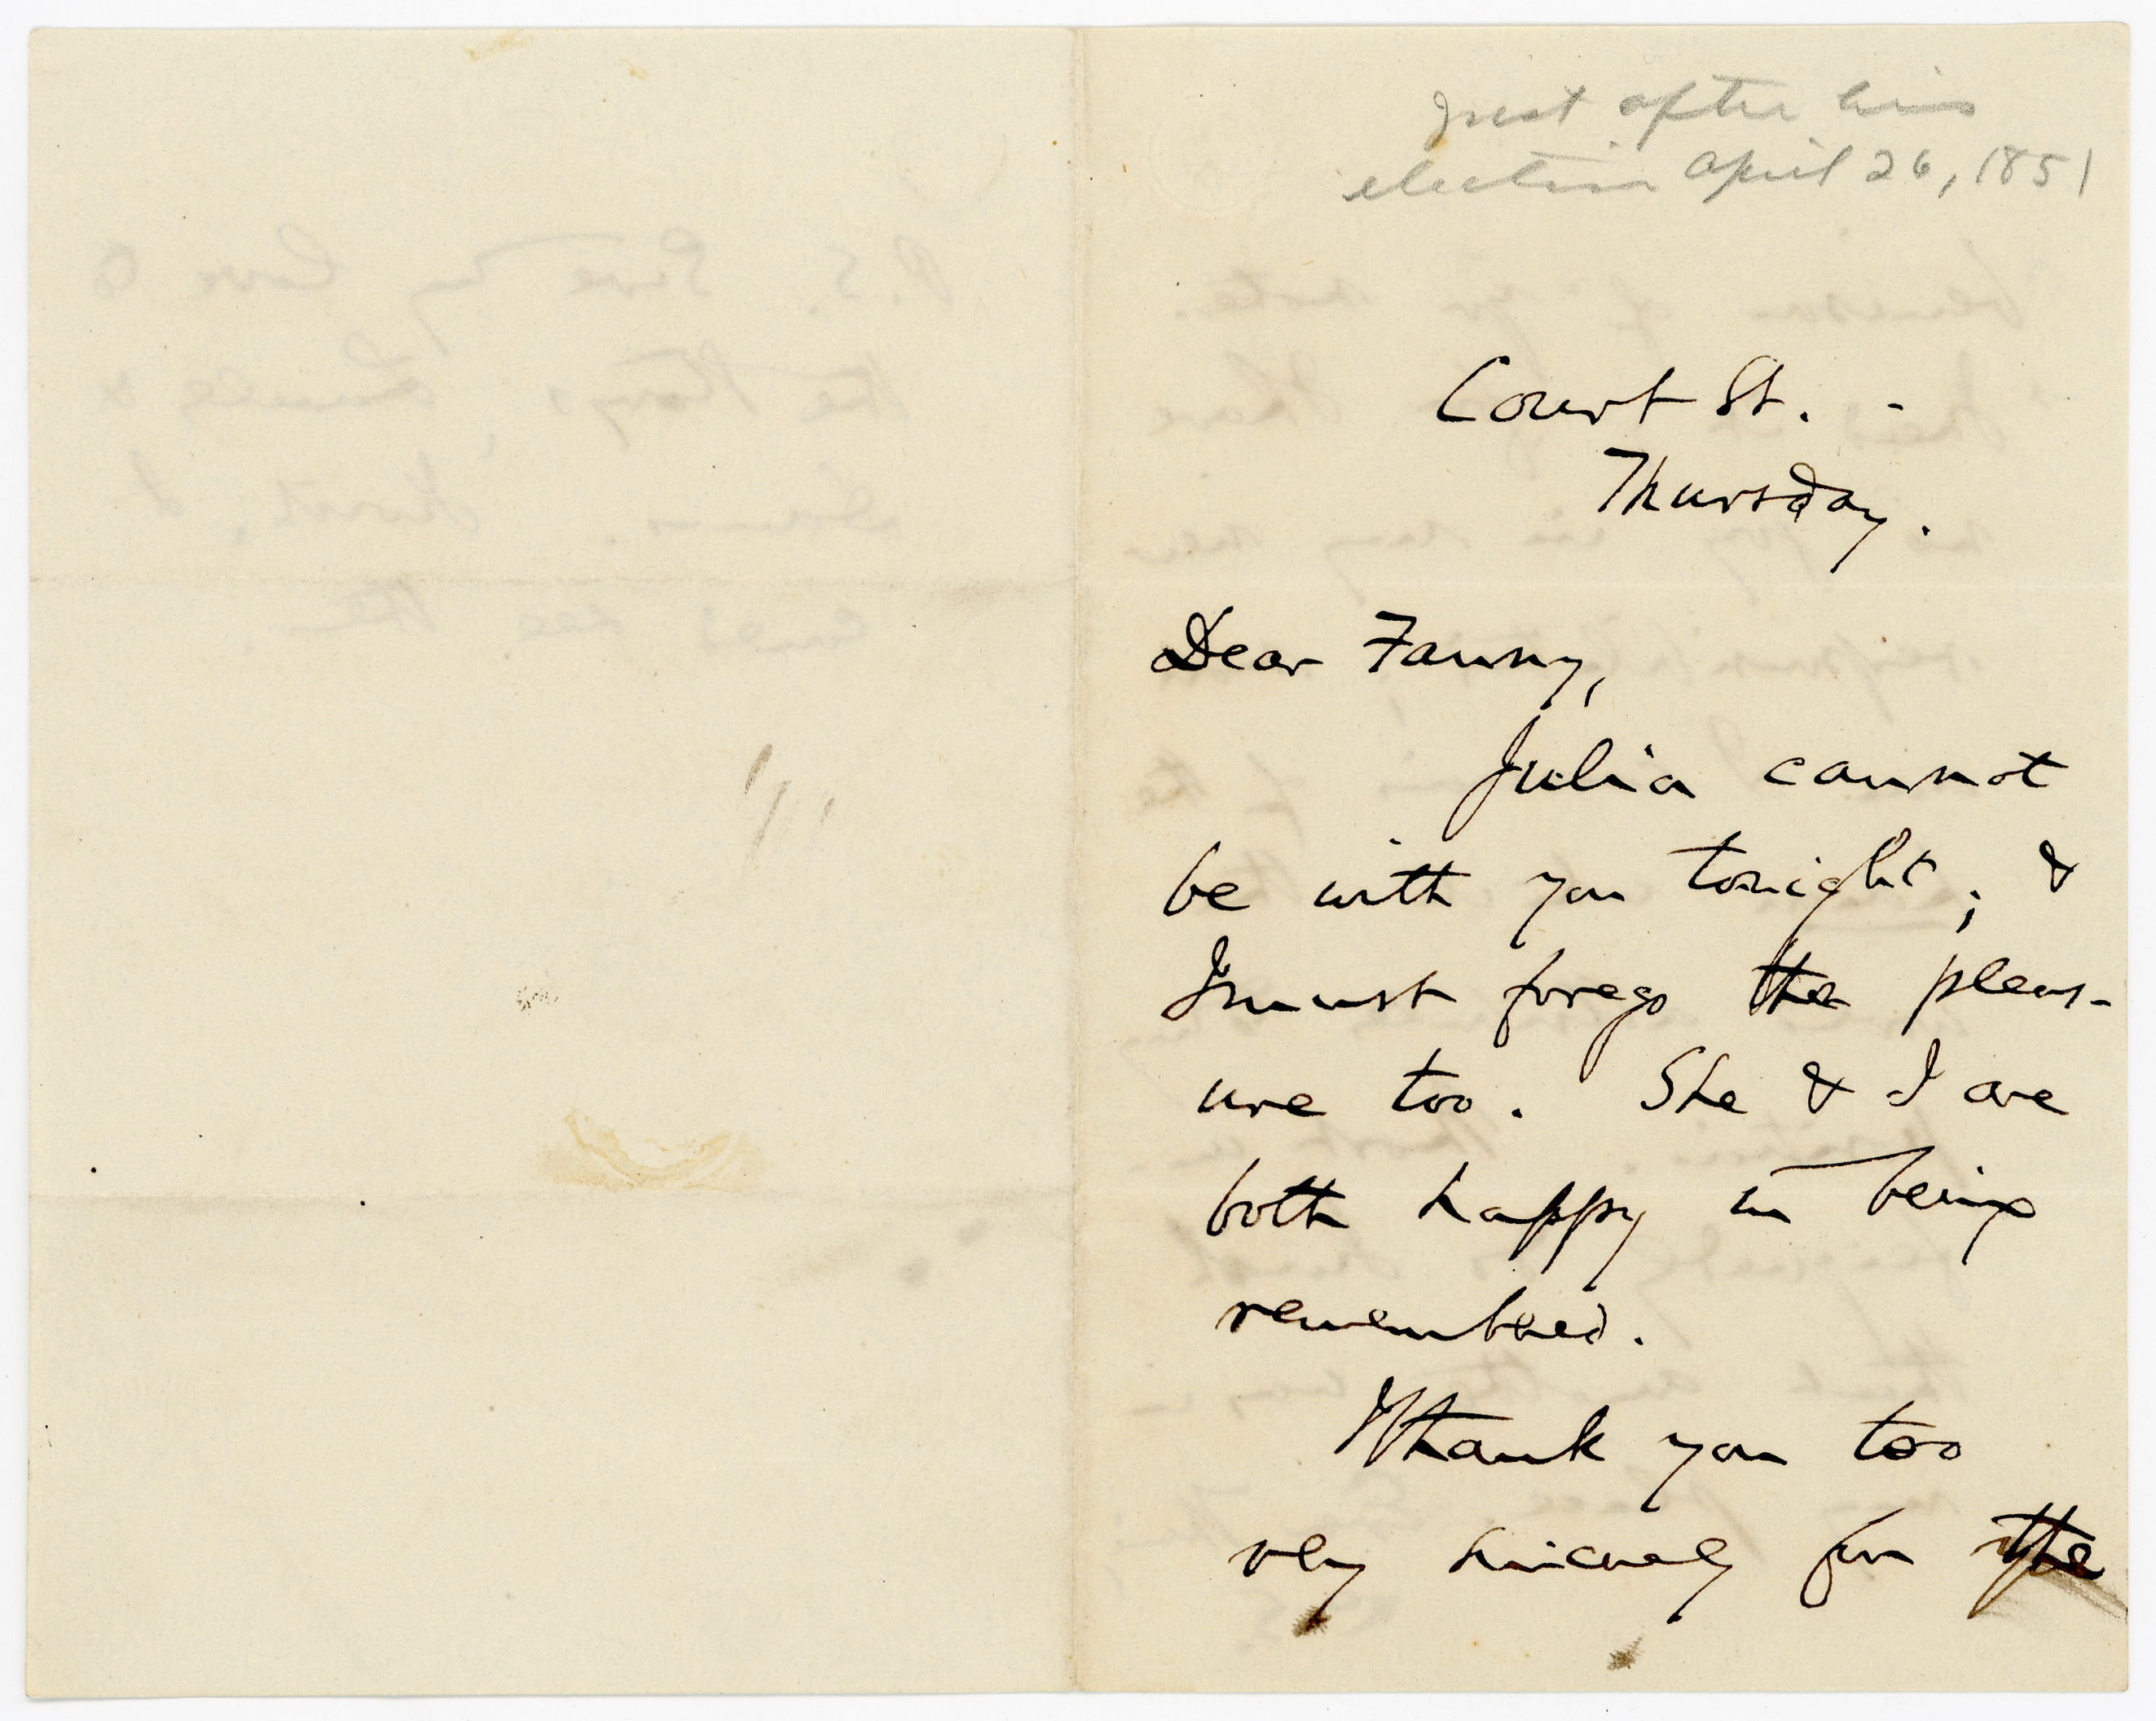 just after his
election April 26, 1851
Court St. -
Thursday.
Dear Fanny,
Julia cannot
be with you tonight; &
I must forego the pleas-
ure too. She & I are
both happy in being
remembered.
Thank you too
very sincerely for the